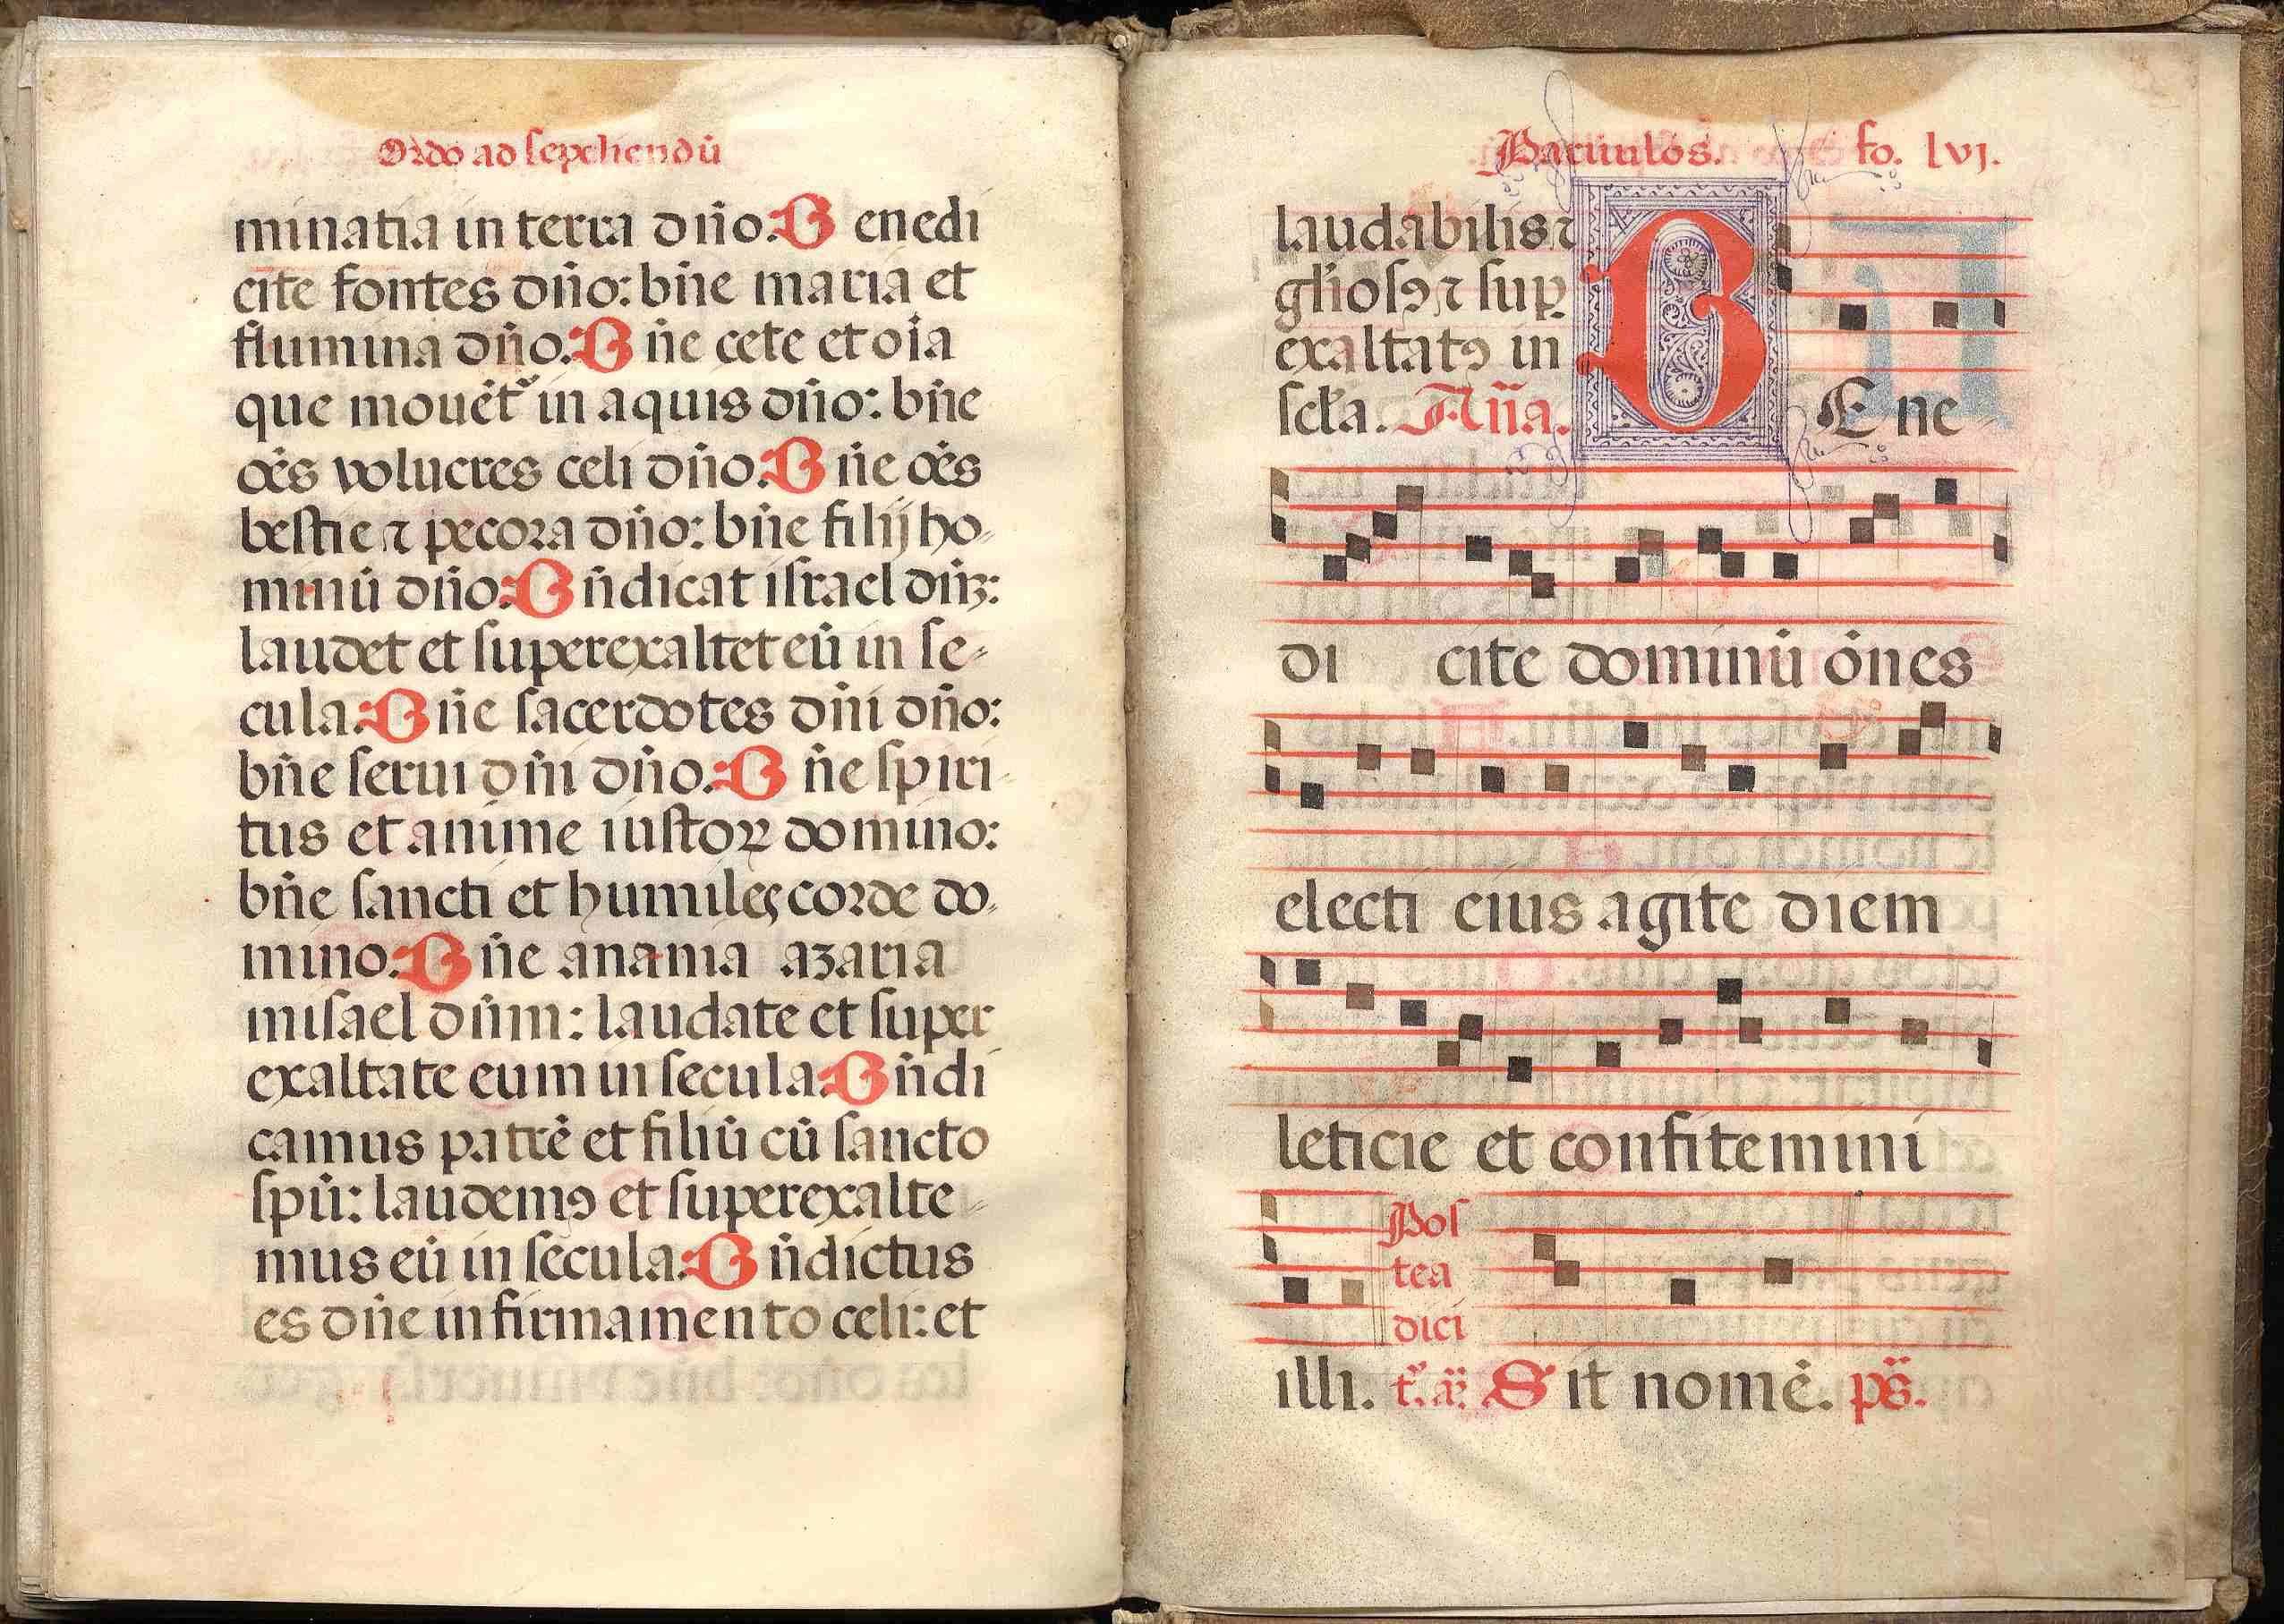 Ordo ad sepeliendū
minatia in terra dn̄o. B enedi
cite fontes dn̄o: bn̄e maria et
flumina dn̄o. B n̄e cete et oīa
que mouēt᷑ in aquis dn̄o: bn̄e
oēs volucres celi dn̄o. B n̄e oēs
bestie ⁊ pecora dn̄o: bn̄e filij ho-
minū dn̄o: B n̄dicat israel dn̄ꝫ:
laudet et superexaltet eū in se-
cula. B n̄e sacerdotes dn̄i dn̄o:
bn̄e serui dn̄i dn̄o. B n̄e spiri-
tus et anime iustoꝝ domino:
bn̄e sancti et humiles corde do-
mino. B n̄e anania azaria
misael dn̄m: laudate et super
exaltate eum in secula. B n̄di
camus patrē et filiū cū sancto
spū: laudemꝰ et superexalte-
mus eū in secula. B n̄dictus
es dn̄e in firmamento celi: et
Paruulos. fo. lvj.
laudabilis ⁊
gl̄iosꝰ ⁊ sup̱
exaltatꝰ in
scl̄a. An̄a. B Ene-
di cite dominū ōnes
electi eius agite diem
leticie et confitemini
Pos
tea
dici
illi. t᷑. a᷑. Sit nomē. p̄s.